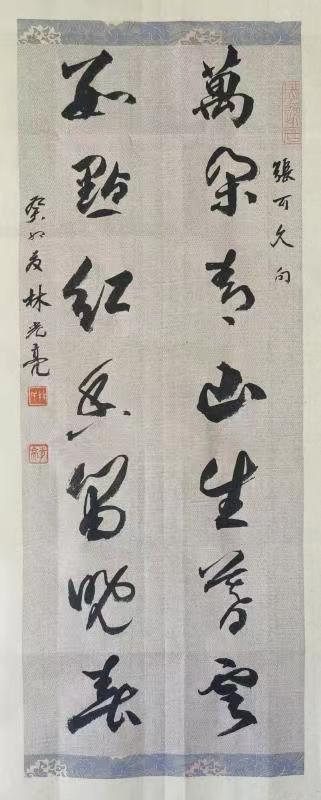 萬朵青山生暮雲
張可久句
數點紅香留晚春
癸卯夏林光亮